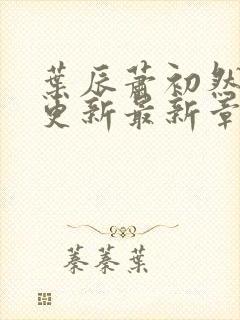 葉辰蕭初然
更新最新章
蓁蓁葉